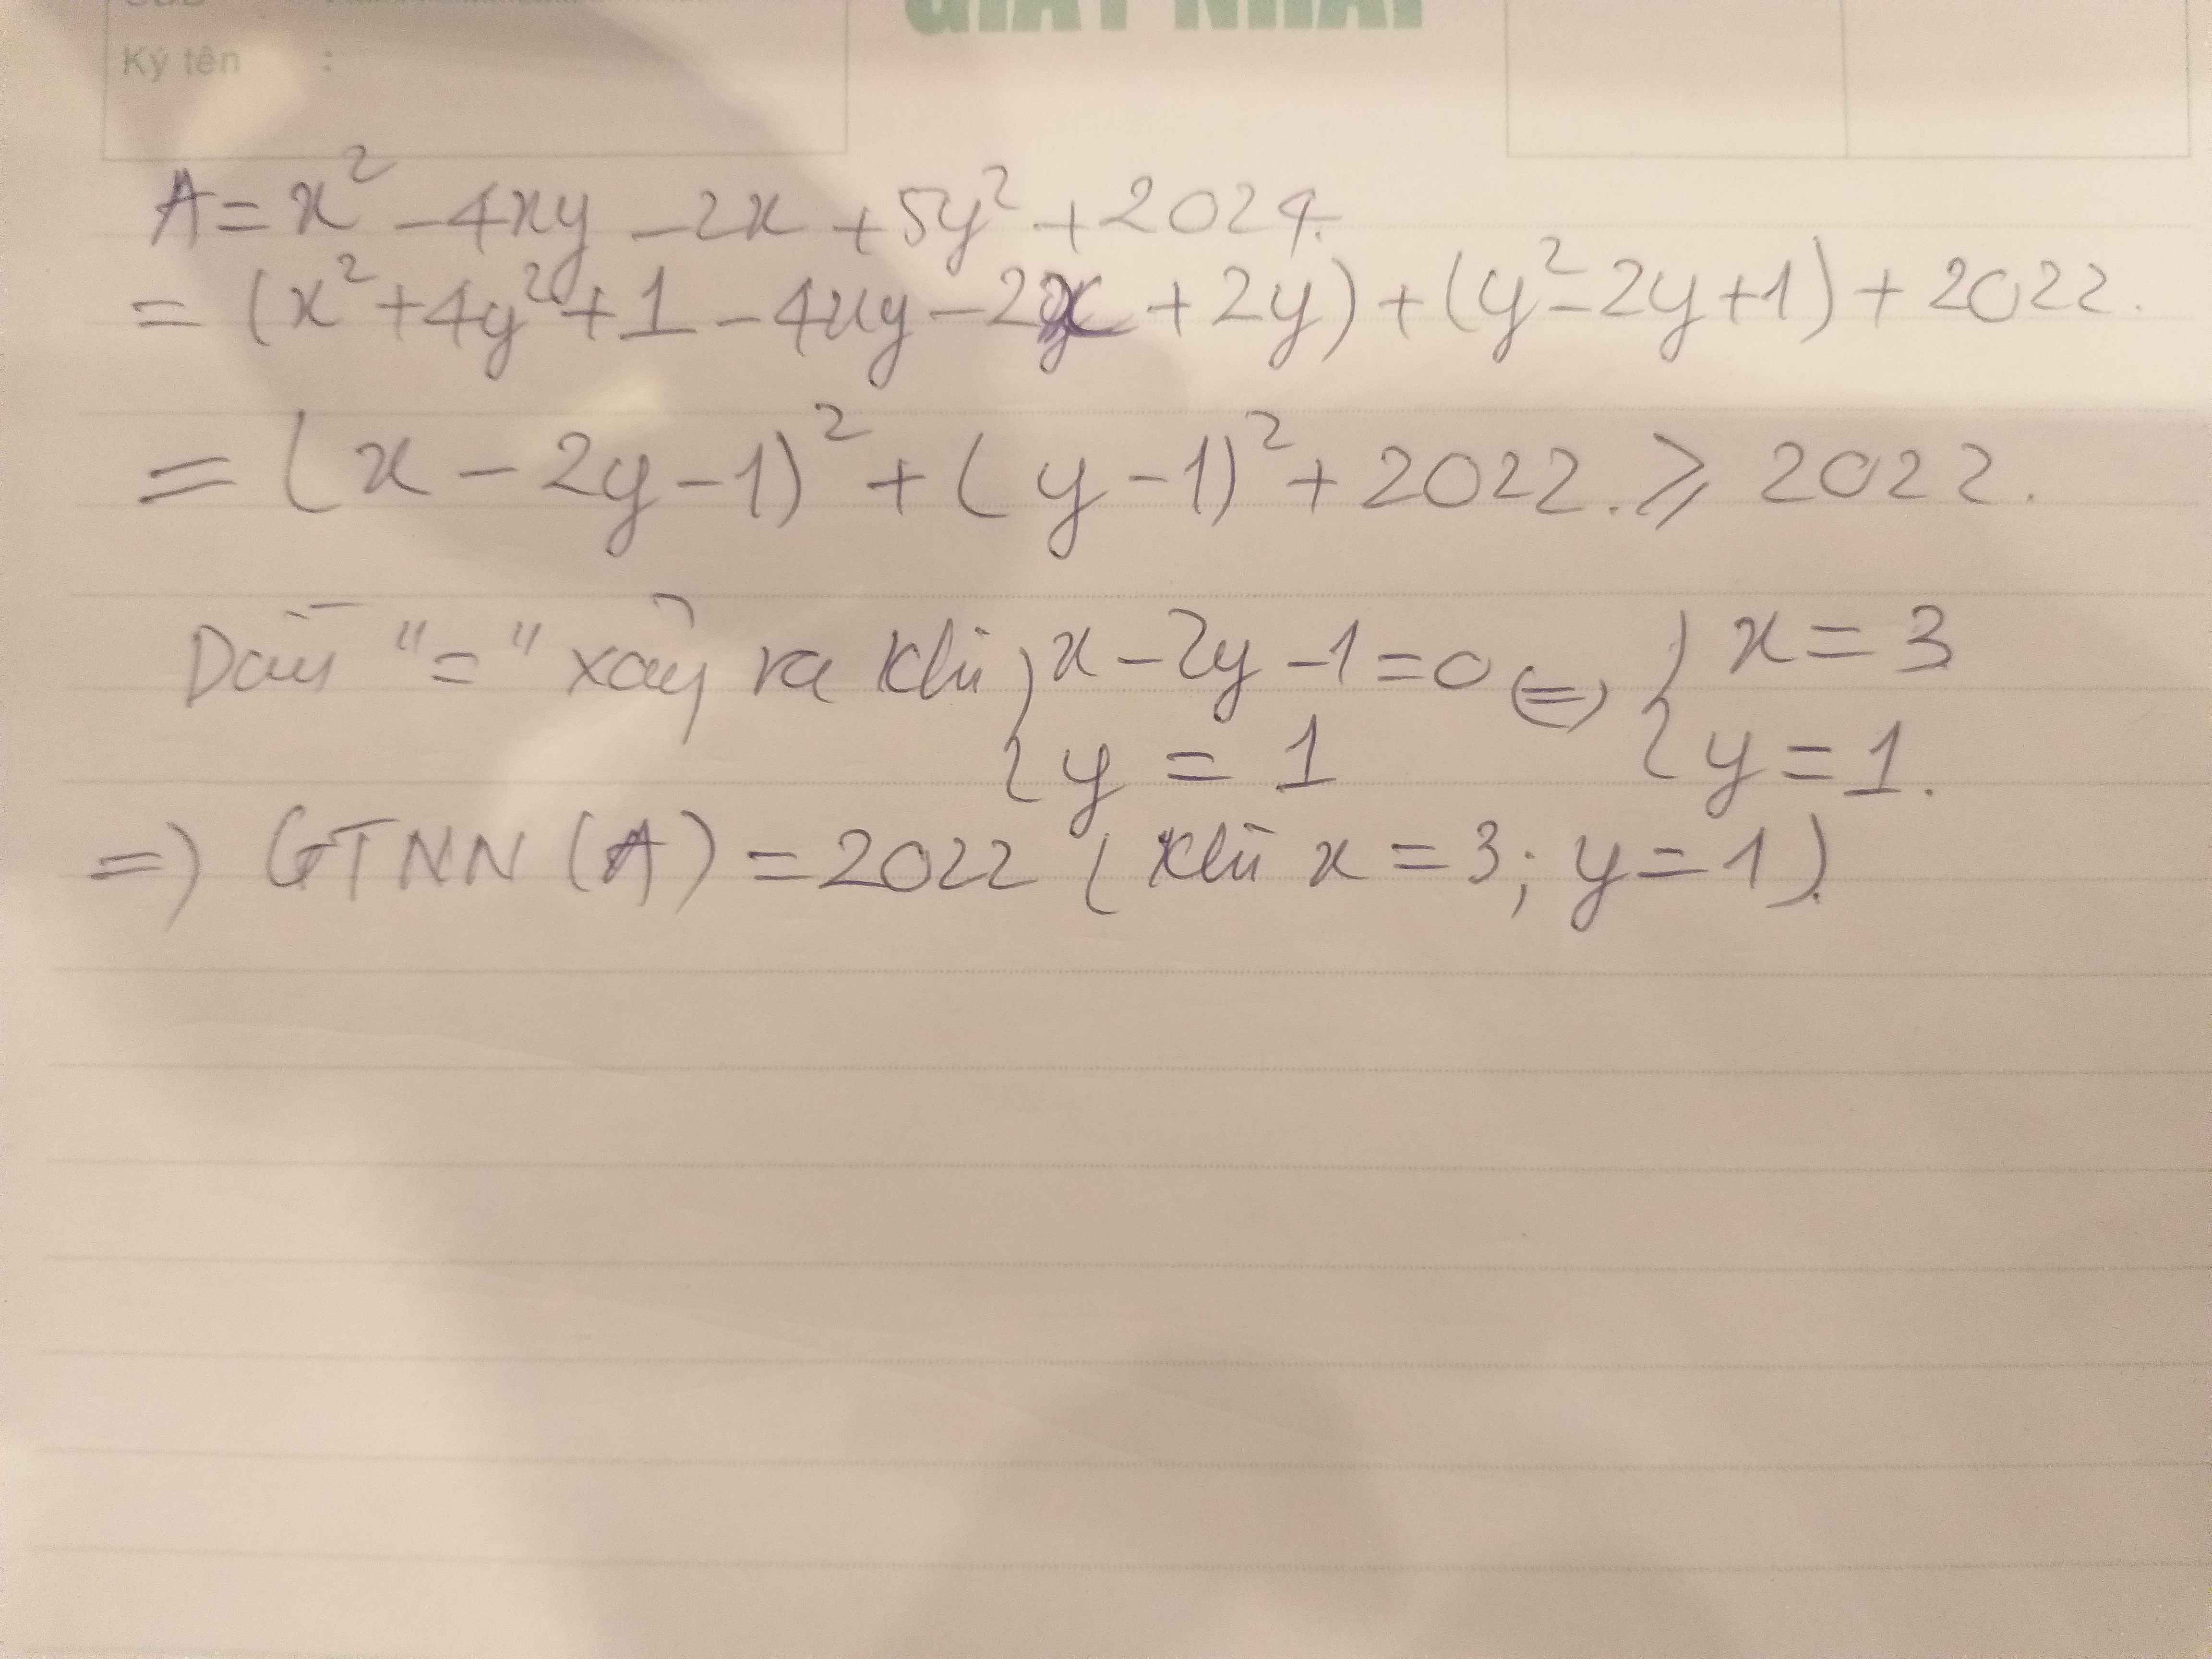 Ký tên :
GIẤY NHÁP
A = x² - 4xy - 2x + 5y² + 2024.
= (x² + 4y² + 1 - 4xy - 2x + 2y) + (y² - 2y + 1) + 2022.
= (x - 2y - 1)² + (y - 1)² + 2022. ⩾ 2022.
Dấu "=" xảy ra khi { x - 2y - 1 = 0 (=) { x = 3
{ y = 1 { y = 1.
=) GTNN (A) = 2022 (khi x = 3; y = 1).